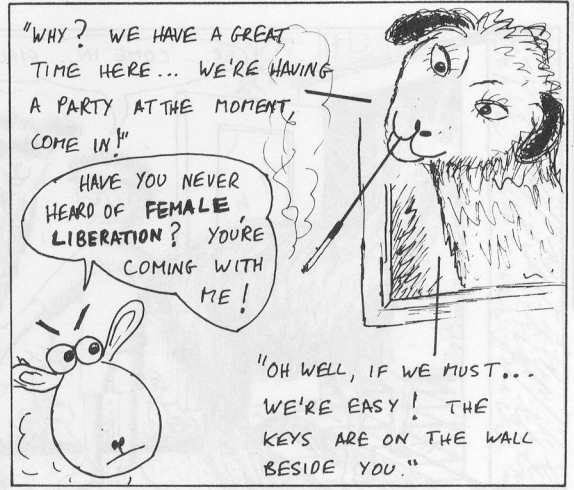 "WHY? WE HAVE A GREAT
TIME HERE... WE'RE HAVING
A PARTY AT THE MOMENT,
COME IN!"
HAVE YOU NEVER
HEARD OF FEMALE
LIBERATION? YOU'RE
COMING WITH
ME!
"OH WELL, IF WE MUST...
WE'RE EASY! THE
KEYS ARE ON THE WALL
BESIDE YOU."